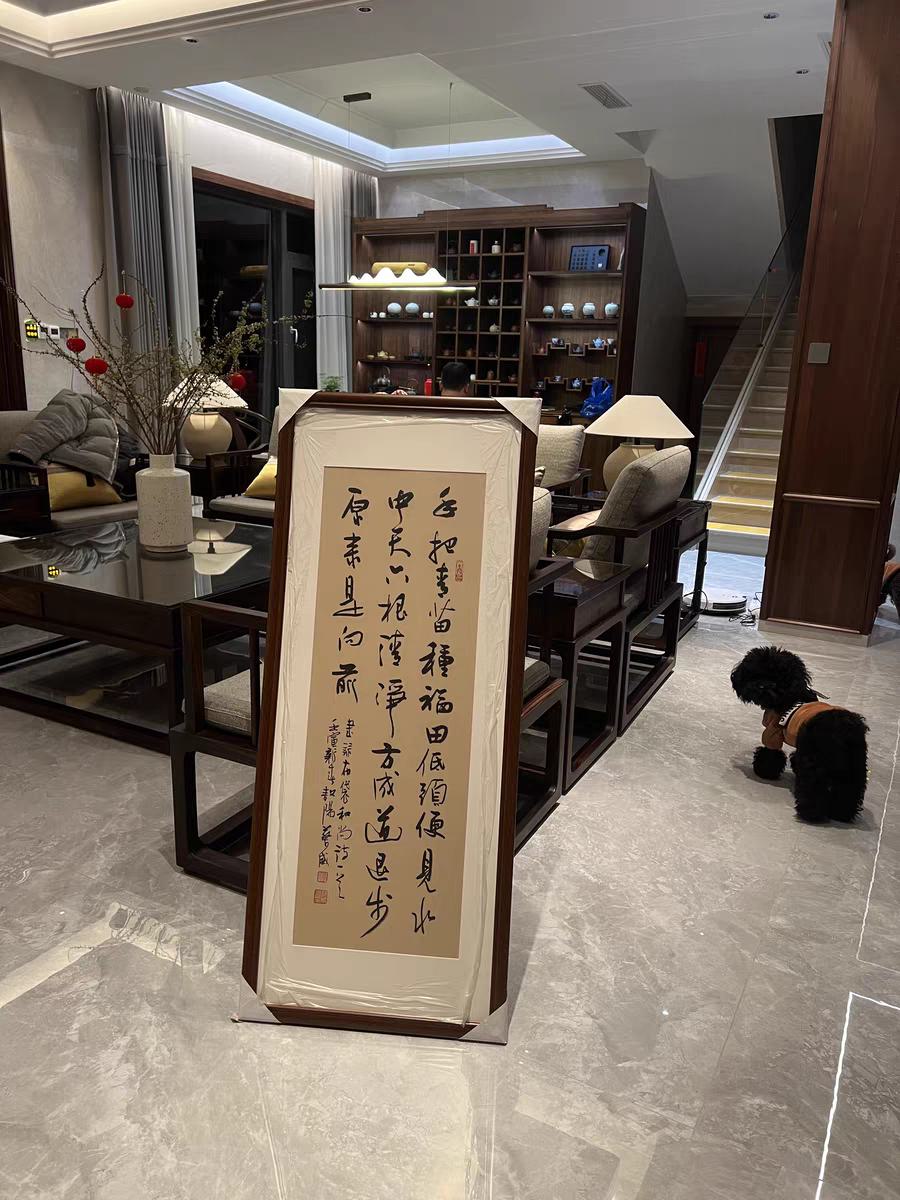 手把青苗種福田低頭便見水
中天六根清淨方成道退步
原來是向前
錄布袋和尚詩一首
壬寅新年